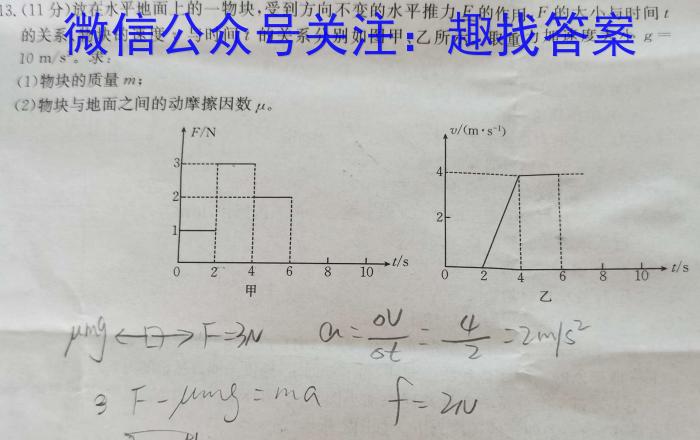 13.(11分)放在水平地面上的一物块,受到方向不变的水平推力F的作用,F的大小与时间t
的关系 物块的速度 与时间t的关系分别如图甲、乙所示,取重力加速度 g=
微信公众号关注：趣找答案
10 m/s²。求:
(1)物块的质量m;
(2)物块与地面之间的动摩擦因数μ。
F/N
3
2
1
0 2 4 6 8 10 t/s
甲
v/(m·s⁻¹)
4
2
0 2 4 6 8 10 t/s
乙
μmg F=3N a= = 4/2 =2m/s²
F-μmg=ma f=2N